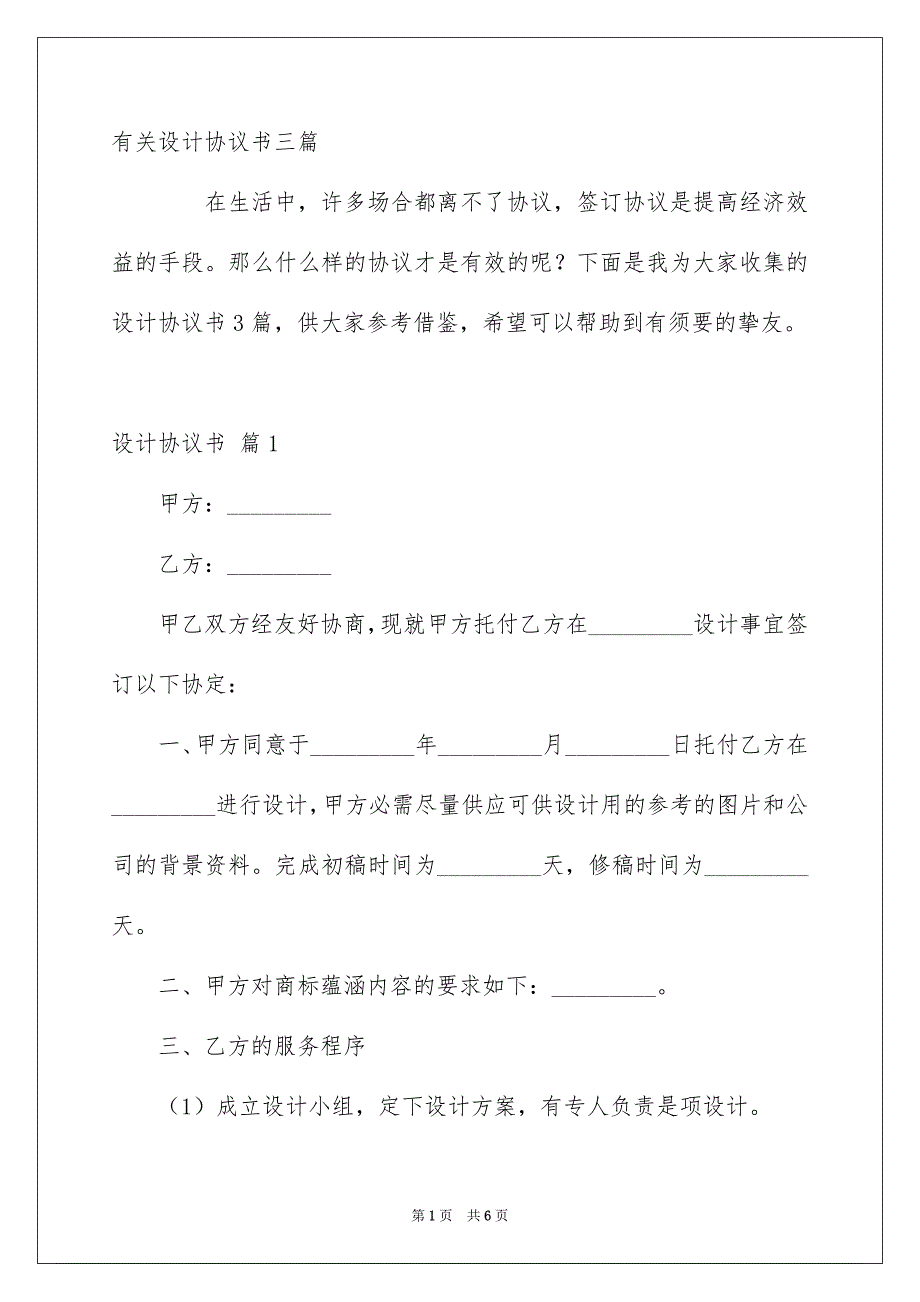 有关设计协议书三篇
在生活中，许多场合都离不了协议，签订协议是提高经济效
益的手段。那么什么样的协议才是有效的呢？下面是我为大家收集的
设计协议书3篇，供大家参考借鉴，希望可以帮助到有须要的挚友。
设计协议书 篇1
甲方：_________
乙方：_________
甲乙双方经友好协商，现就甲方托付乙方在_________设计事宜签
订以下协定：
一、甲方同意于_________年_________月_________日托付乙方在
_________进行设计，甲方必需尽量供应可供设计用的参考的图片和公
司的背景资料。完成初稿时间为_________天，修稿时间为_________
天。
二、甲方对商标蕴涵内容的要求如下：_________。
三、乙方的服务程序
（1）成立设计小组，定下设计方案，有专人负责是项设计。
第1页 共6页